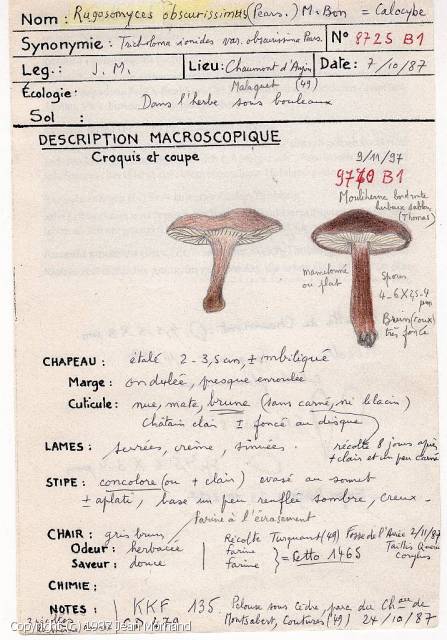 Nom : Rugosomyces obscurissimus (Pears.) M. Bon = Calocybe
Synonymie : Tricholoma ionides var. obscurissima Pears. N° 8725 B1
Leg. : J. M. Lieu : Chaumont d'Anjou Date : 7/10/87
Malaquet (49)
Écologie :
Dans l'herbe sous bouleaux
Sol :
DESCRIPTION MACROSCOPIQUE
Croquis et coupe
9/11/97
9770 B1
Mouliherne bord route
herbeux sableux
(Thomas)
mamelonné
ou plat
Spores
4-6 X 2,5-4
µm
Brun (roux)
très foncé
CHAPEAU : étalé 2 - 3,5 cm, ± ombiliqué
Marge : ondulée, presque enroulée
Cuticule : nue, mate, brune (sans carné, ni lilacin)
Châtain clair ± foncé au disque
LAMES : serrées, crème, sinuées. récolte 8 jours après
+ clair et un peu carné
STIPE : concolore (ou + clair) évasé au sommet
± aplati, base un peu renflée sombre, creux -
farine à l'écrasement
CHAIR : gris brun Récolte Turquant (49) Fosse de 2/11/87
Odeur : herbacée farine = Cetto 1465 Taillis
Saveur : douce farine
CHIMIE :
NOTES : KKF 135. Pelouse sous Cèdre, parc du Chau de
Montsabert, Coutures (49) 24/10/87
Copyright (c) 1987 Jean Mornand